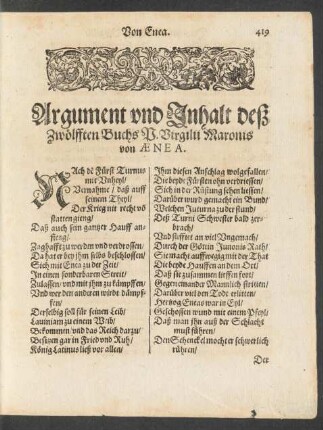 Von Enea. 419
Argument vnd Inhalt deß
Zwölfften Buchs P. Virgilii Maronis
von ÆNEA.
NAch dē Fürst Turnus
mit Vnheyl/
Vernahme/ daß auff
seinem Theyl/
Der Krieg nit recht võ
statten gieng/
Daß auch sein gantzer Hauff an-
fieng/
Zaghafft zu werden vnd verdrossen/
Da hat er bey ihm selbs beschlossen/
Sich mit Enea zu der Zeit/
In einen sonderbaren Streit/
Zulassen/ vnd mit ihm zu kämpffen/
Vnd wer den anderen würde dämpf-
fen/
Derselbig soll für seinen Leib/
Lauiniam zu einem Weib/
Bekommen/ vnd das Reich darzu/
Besitzen gar in Fried vnd Ruh/
König Latinus ließ vor allen/
Ihm diesen Anschlag wolgefallen/
Die beyde Fürsten ohn verdriessen/
Sich in der Rüstung sehen liessen/
Darüber ward gemacht ein Bund/
Welchen Juturna zu der stund/
Deß Turni Schwester bald zer-
brach/
Vnd stifftet an viel Vngemach/
Durch der Göttin Junonis Rath/
Sie macht auffwegig mit der That
Die beyde Hauffen an dem Ort/
Daß sie zusammen lieffen fort/
Gegen einander Mannlich stritten/
Darüber viel den Todt erlitten/
Hertzog Eneas war in Eyl/
Geschossen wund mit einem Pfeyl/
Daß man ihn auß der Schlacht
must führen/
Den Schenckel mocht er schwerlich
rühren/
Der